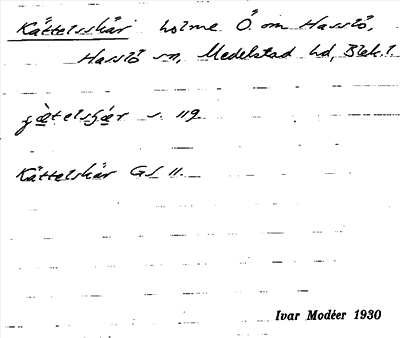 Kättelsskär holme Ö. om Hasslö,
Hasslö sn, Medelstad hd, Blek. l.
s. 119
Kättelskär GS 11.
Ivar Modéer 1930